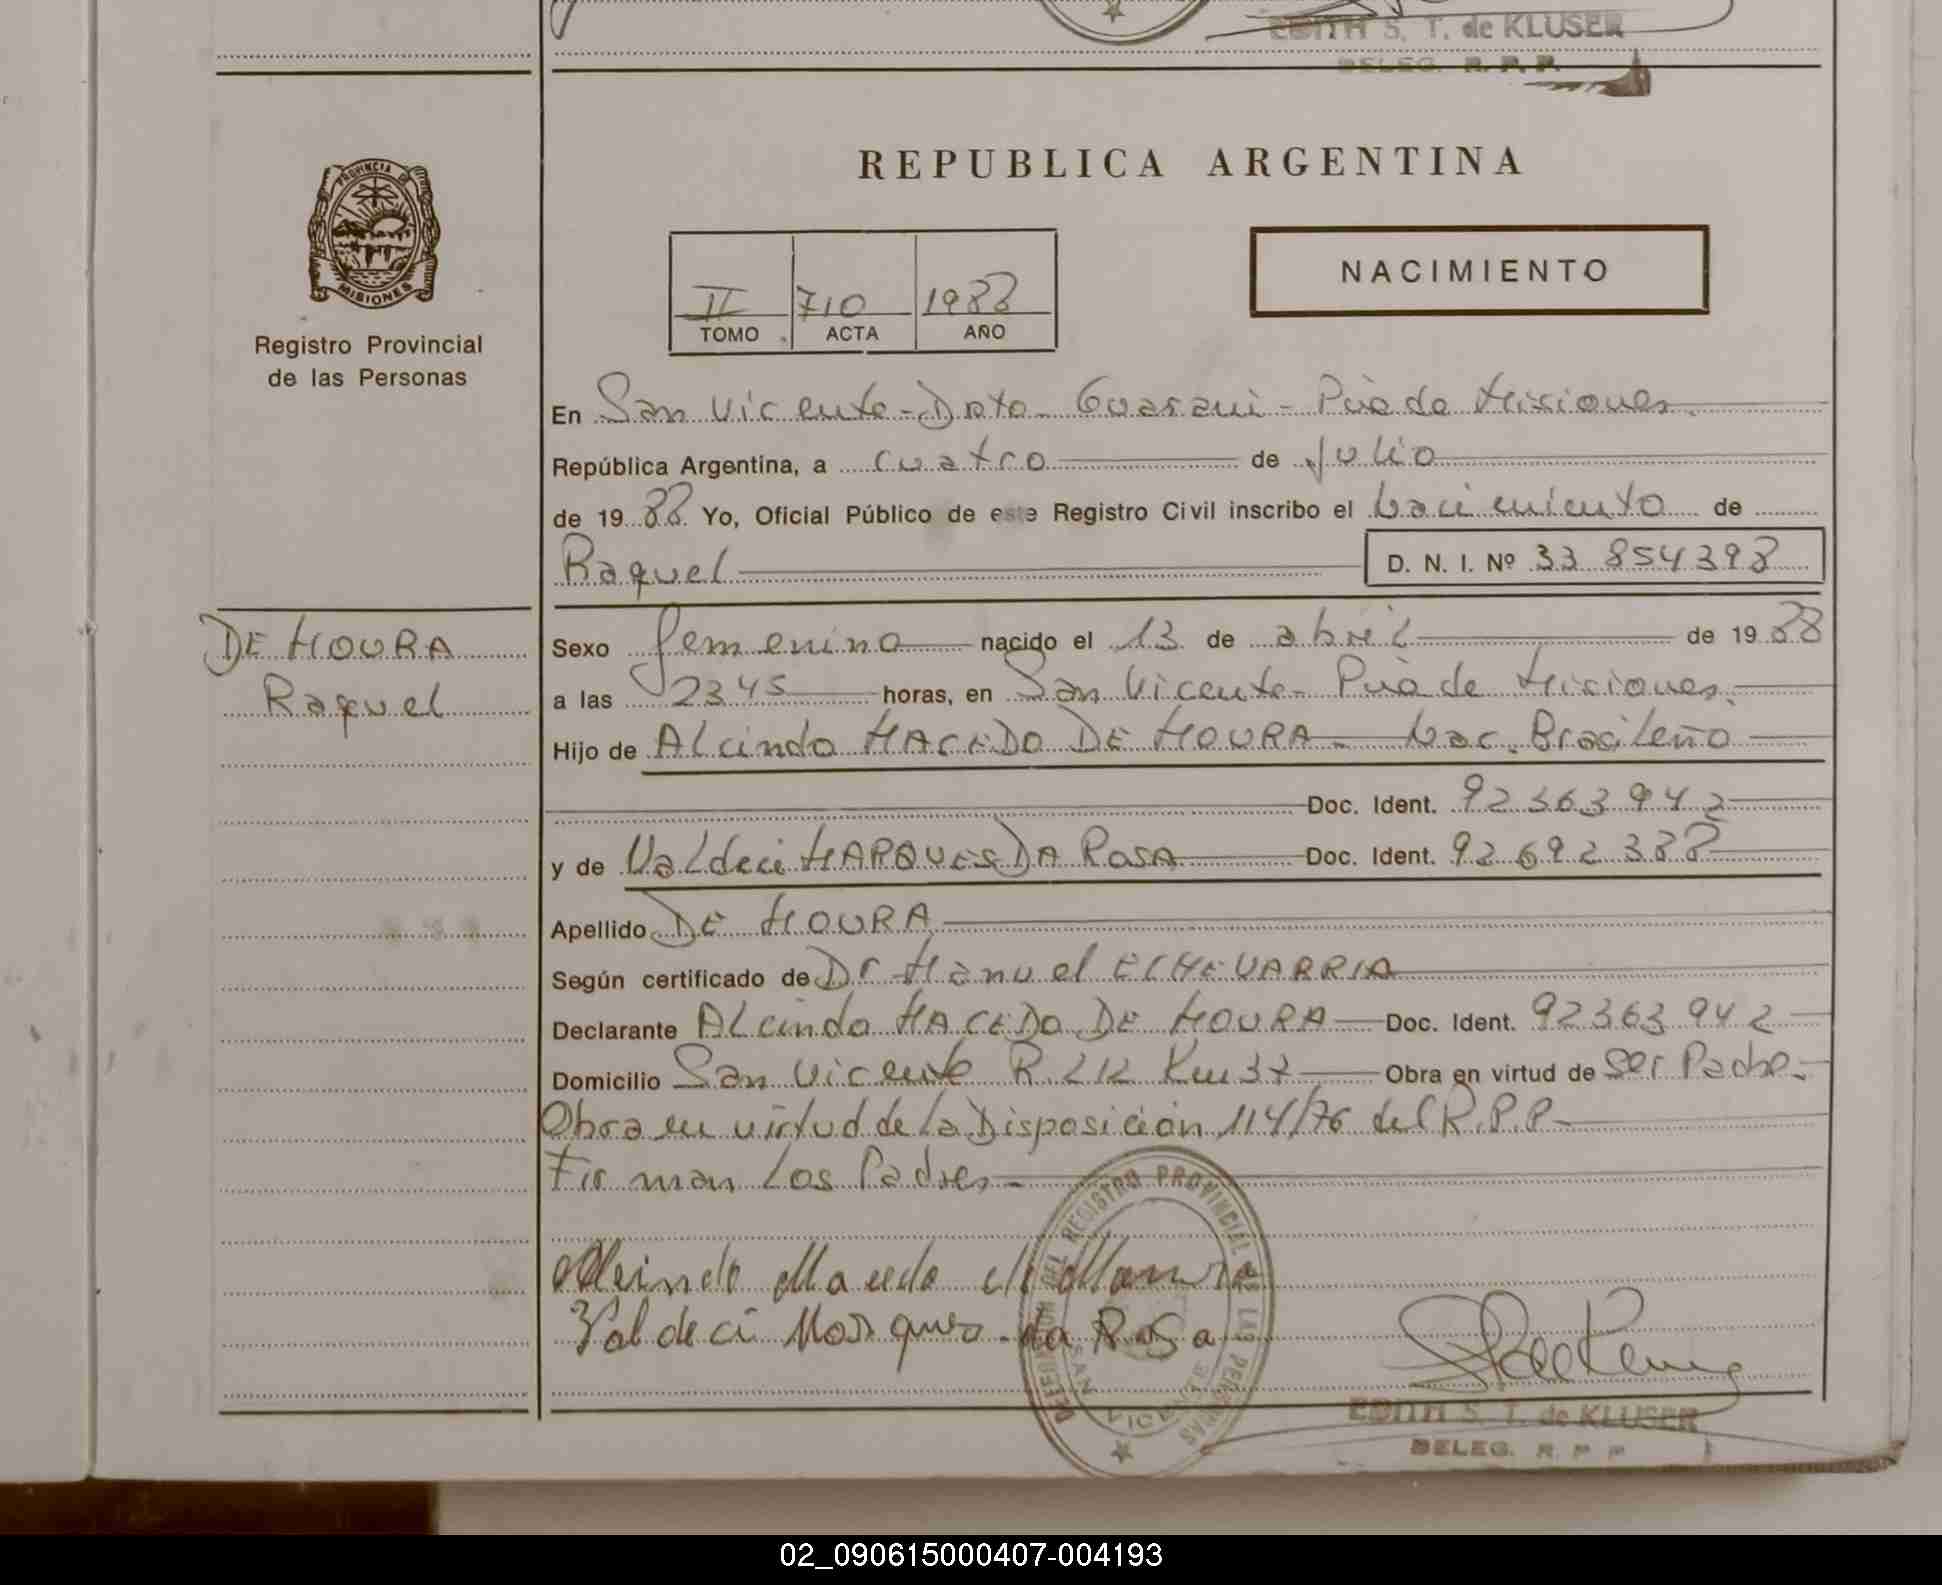 EDITH S. T. de KLUSER
DELEG. R. P. P.
PROVINCIA DE
MISIONES
Registro Provincial
de las Personas
REPUBLICA ARGENTINA
II 710 1988
TOMO ACTA AÑO
NACIMIENTO
En San Vicente - Dpto Guarani - Pcia de Misiones
República Argentina, a cuatro de Julio
de 1988 Yo, Oficial Público de este Registro Civil inscribo el Nacimiento de
Raquel D. N. I. Nº 33 854398
DE MOURA
Raquel
Sexo femenino nacido el 13 de abril de 1988
a las 2345 horas, en San Vicente - Pcia de Misiones.
Hijo de Alcindo MACEDO DE MOURA - Nac. Brasileño
Doc. Ident. 92363942
y de Valdeci MARQUES DA ROSA Doc. Ident. 92692388
Apellido DE MOURA
Según certificado de Dr Manuel ECHEVARRIA
Declarante Alcindo MACEDO DE MOURA Doc. Ident. 92363942
Domicilio San Vicente R. Km 37 Obra en virtud de ser Padre.
Obra en virtud de la Disposición 114/76 del R.P.P.
Firman los Padres -
Alcindo Macedo de Moura
Valdeci Marques da Rosa
DELEGACION DEL REGISTRO PROVINCIAL DE LAS PERSONAS
SAN VICENTE
EDITH S. T. de KLUSER
DELEG. R. P. P.
02_090615000407-004193